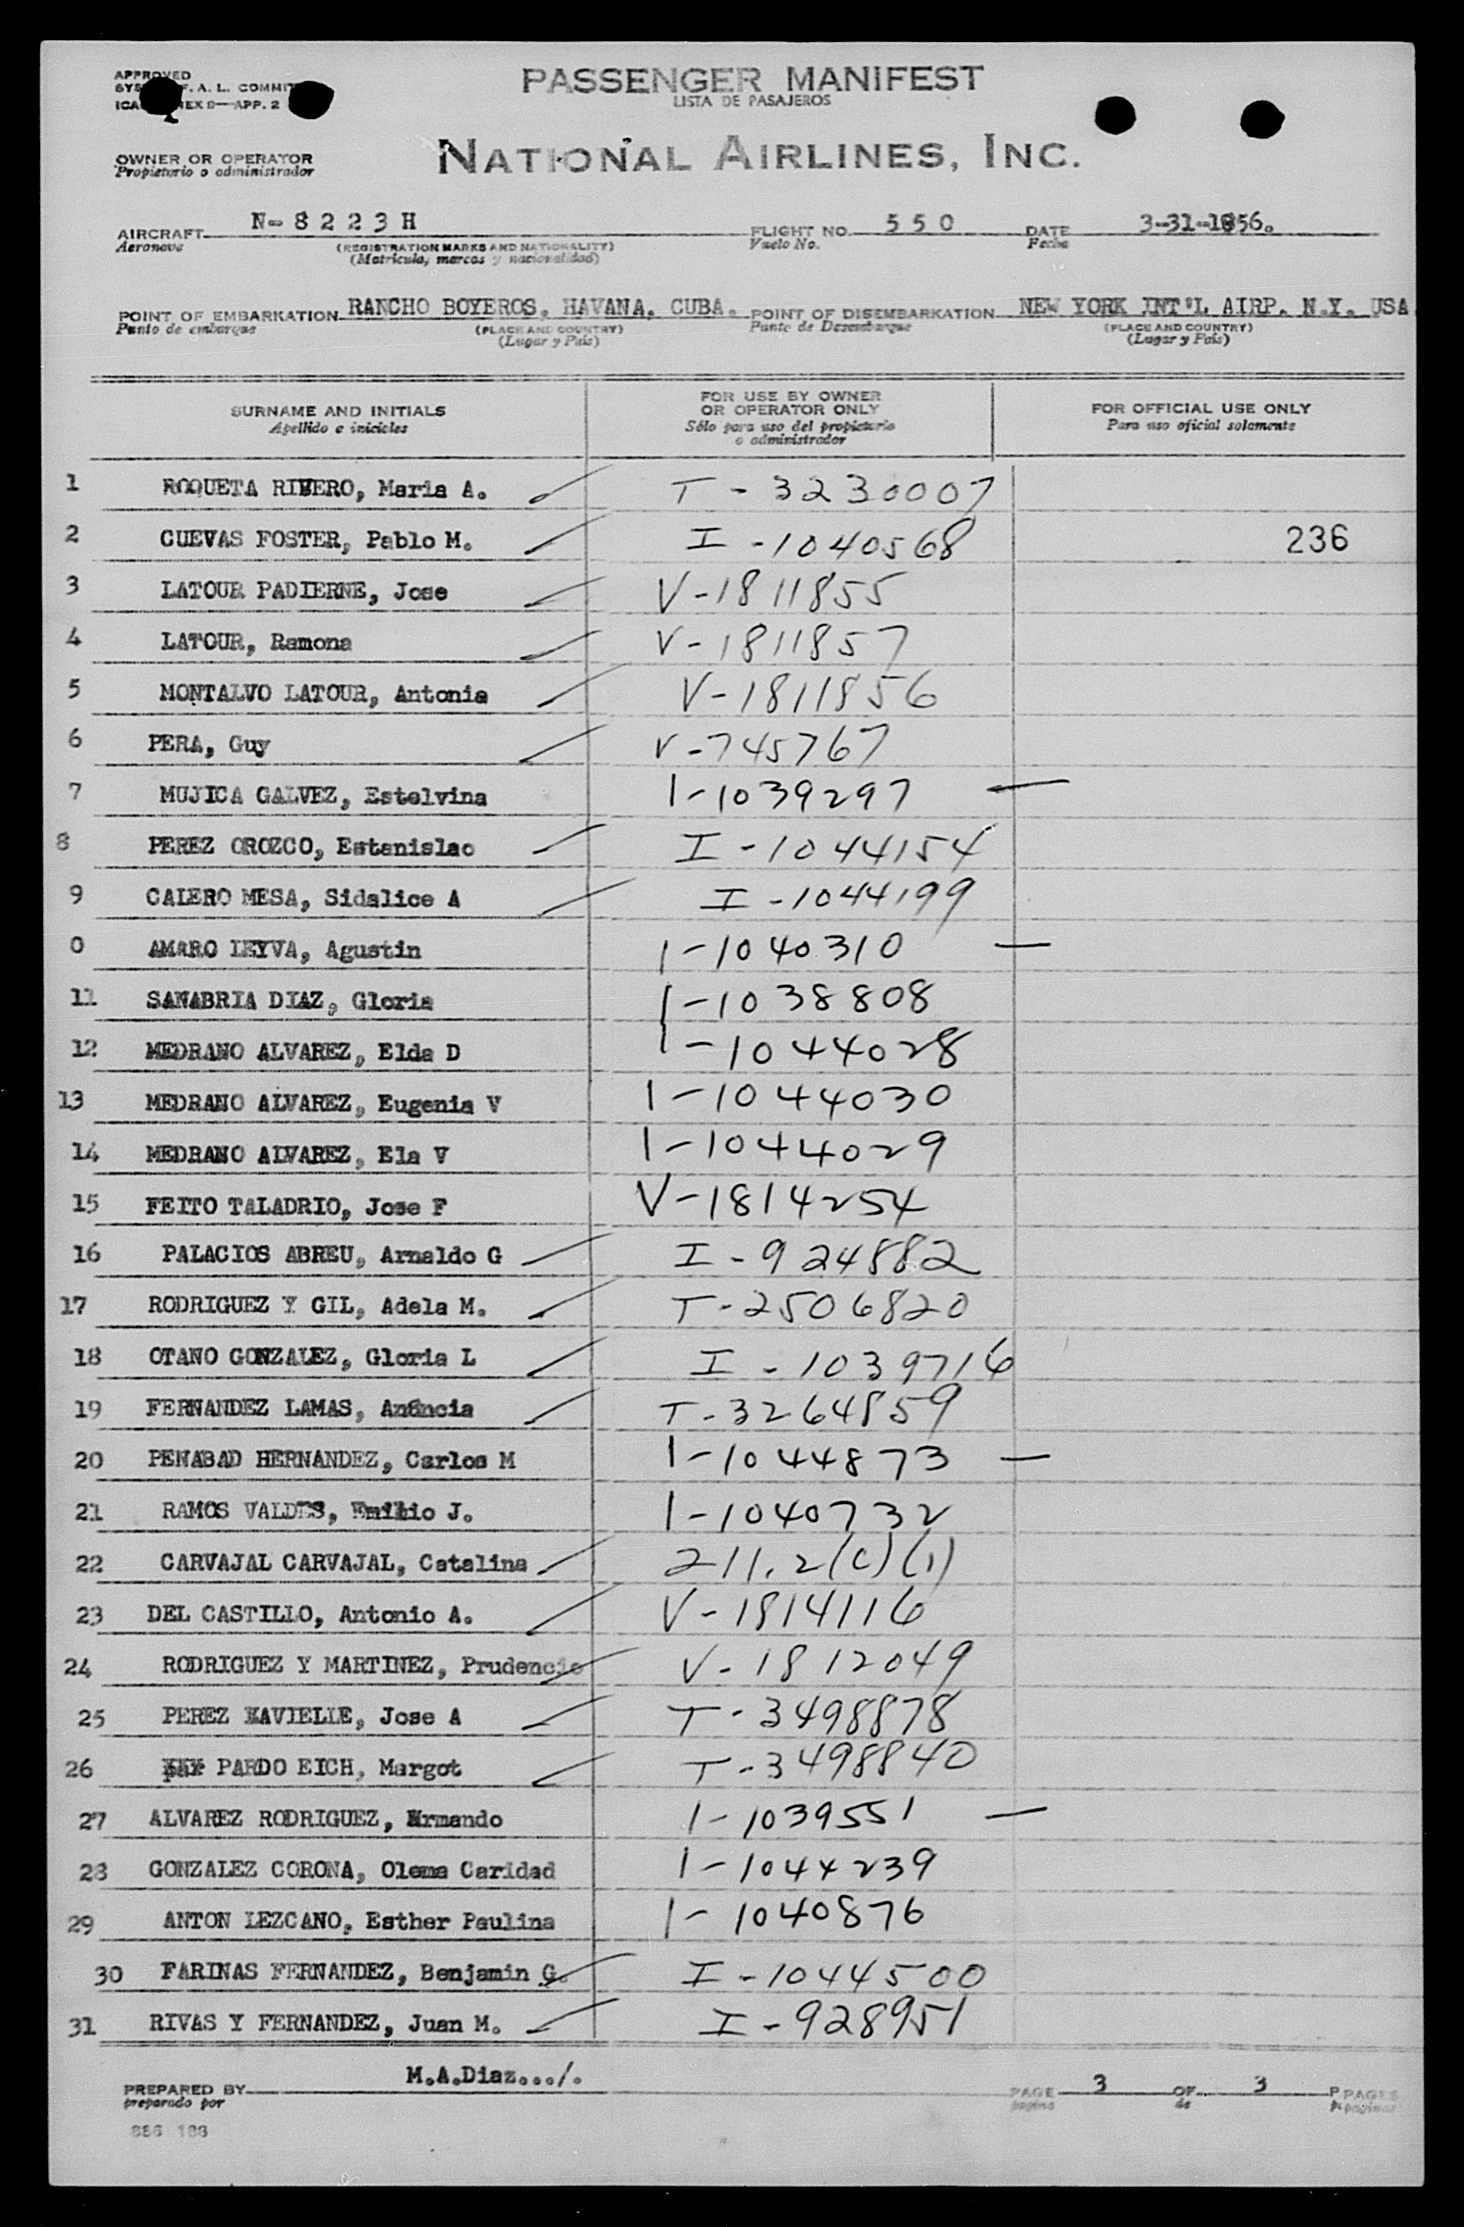 APPROVED
F. A. L. COMMIT
APP. 2
PASSENGER MANIFEST
LISTA DE PASAJEROS
OWNER OR OPERATOR
Propietario o administrador
NATIONAL AIRLINES, INC.
AIRCRAFT N-8223H FLIGHT NO. 550 DATE 3-31-1956.
Aeronave (REGISTRATION MARKS AND NATIONALITY) Vuelo No. Fecha
(Matricula, marcas y nacionalidad)
POINT OF EMBARKATION RANCHO BOYEROS, HAVANA, CUBA. POINT OF DISEMBARKATION NEW YORK INT'L AIRP. N.Y. USA
Punto de embarque (PLACE AND COUNTRY) Punto de Desembarque (PLACE AND COUNTRY)
(Lugar y País) (Lugar y País)
SURNAME AND INITIALS FOR USE BY OWNER OR OPERATOR ONLY FOR OFFICIAL USE ONLY
Apellido e iniciales Sólo para uso del propietario o administrador Para uso oficial solamente
1 ROQUETA RIVERO, Maria A. T-3230007
2 CUEVAS FOSTER, Pablo M. I-1040568 236
3 LATOUR PADIERNE, Jose V-1811855
4 LATOUR, Ramona V-1811857
5 MONTALVO LATOUR, Antonia V-1811856
6 PERA, Guy V-745767
7 MUJICA GALVEZ, Estelvina I-1039297 —
8 PEREZ OROZCO, Estanislao I-1044154
9 CALERO MESA, Sidalice A I-1044199
0 AMARO LEYVA, Agustin I-1040310 —
11 SANABRIA DIAZ, Gloria I-1038808
12 MEDRANO ALVAREZ, Elda D I-1044028
13 MEDRANO ALVAREZ, Eugenia V I-1044030
14 MEDRANO ALVAREZ, Ela V I-1044029
15 FEITO TALADRIO, Jose F V-1814254
16 PALACIOS ABREU, Arnaldo G I-924882
17 RODRIGUEZ Y GIL, Adela M. T-2506820
18 OTANO GONZALEZ, Gloria L I-1039716
19 FERNANDEZ LAMAS, T-3264859
20 PENABAD HERNANDEZ, Carlos M I-1044873 —
21 RAMOS VALDES, Emilio J. I-1040732
22 CARVAJAL CARVAJAL, Catalina 211.2(c)(1)
23 DEL CASTILLO, Antonio A. V-1814116
24 RODRIGUEZ Y MARTINEZ, Prudencio V-1812049
25 PEREZ XAVIELLE, Jose A T-3498878
26 PARDO EICH, Margot T-3498840
27 ALVAREZ RODRIGUEZ, Armando I-1039551 —
28 GONZALEZ CORONA, Olema Caridad I-1044239
29 ANTON LEZCANO, Esther Paulina I-1040876
30 FARINAS FERNANDEZ, Benjamin G. I-1044500
31 RIVAS Y FERNANDEZ, Juan M. I-928951
PREPARED BY M.A.Diaz.../. PAGE 3 OF 3 PAGES
preparado por pagina de paginas